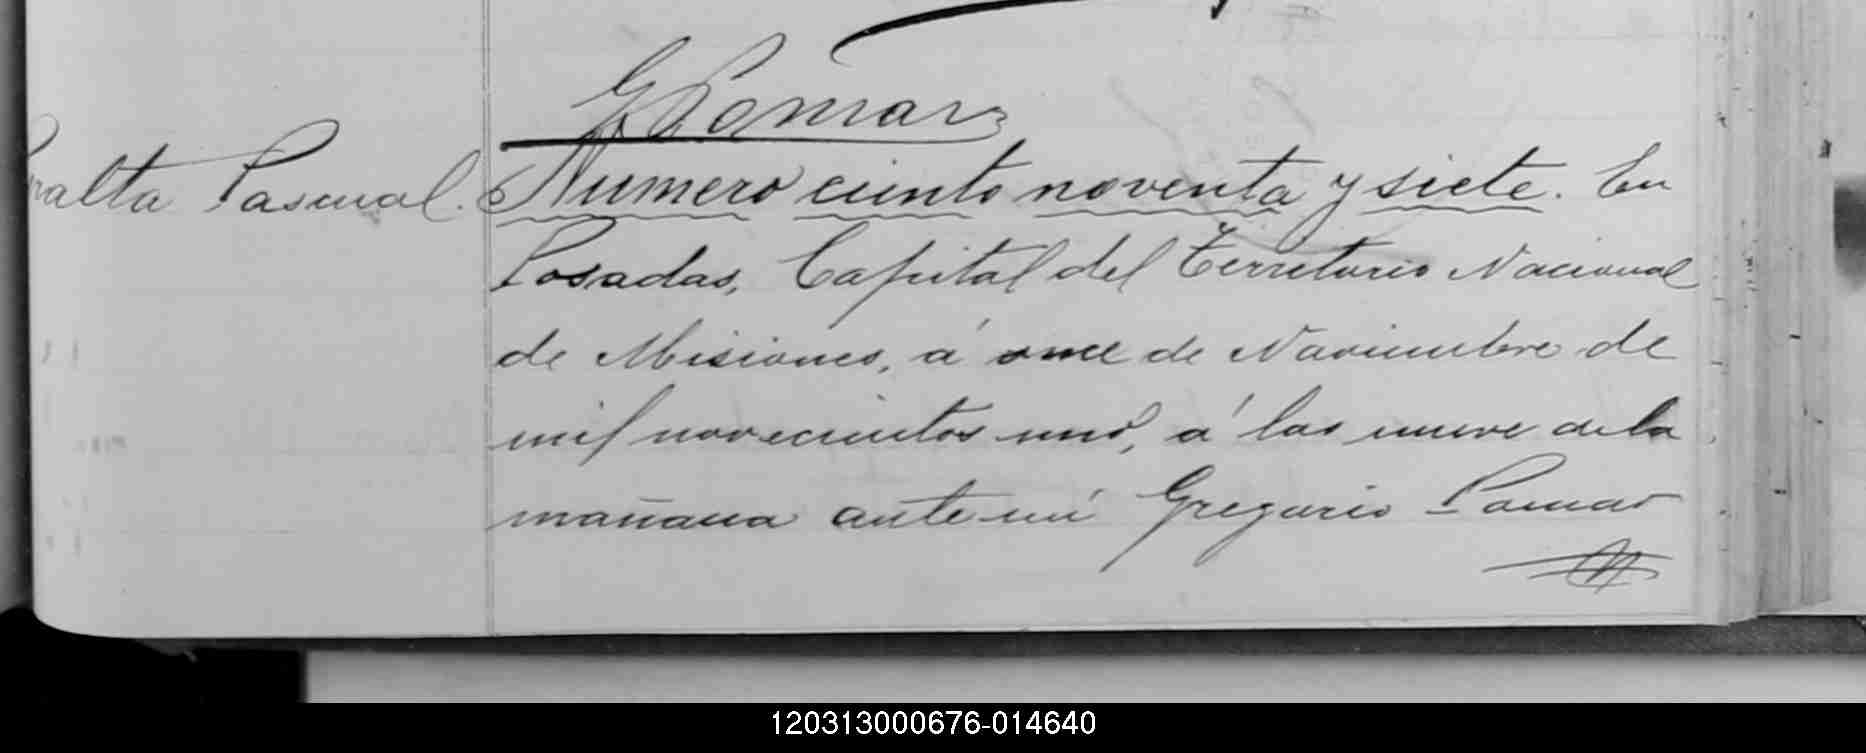 G Pomar
Peralta Pascual. Numero ciento noventa y siete. En
Posadas, Capital del Territorio Nacional
de Misiones, á once de Noviembre de
mil novecientos uno, á las nueve de la
mañana ante mí Gregorio Pomar
120313000676-014640